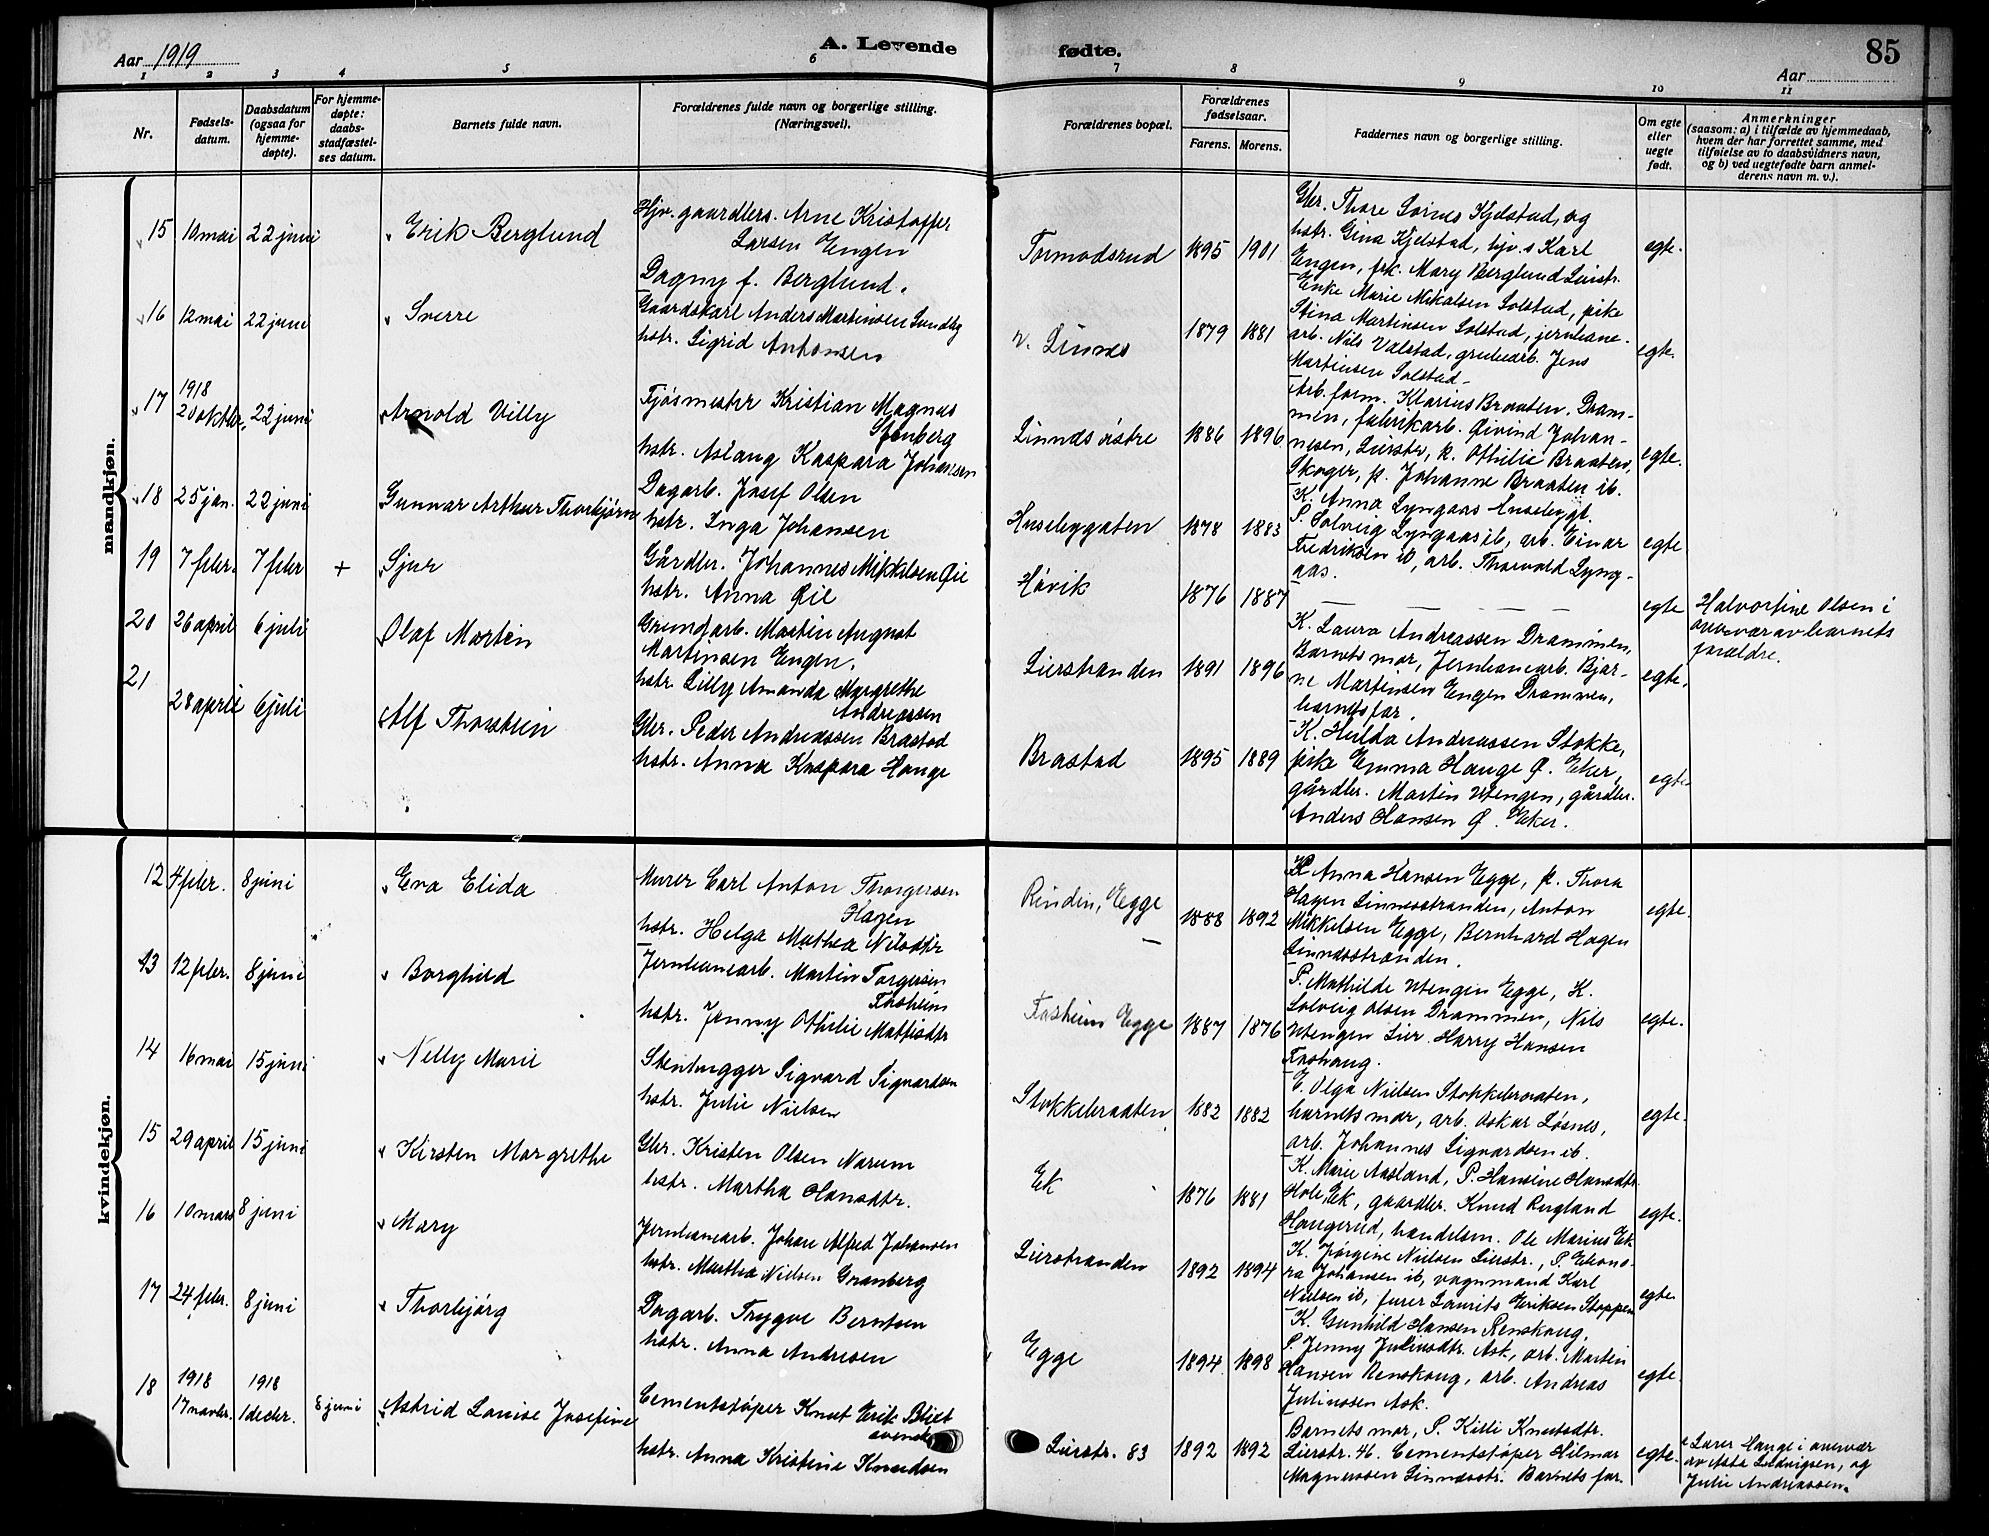 Aar 1919
A. Levende
fødte.
85
Aar
1 2 3 4 5 6 7 8 9 10 11
Nr.
Fødsels-
datum.
Daabsdatum
(ogsaa for
hjemme-
døpte).
For hjemme-
døpte:
daabs-
stadfæstel-
ses datum.
Barnets fulde navn.
Forældrenes fulde navn og borgerlige stilling.
(Næringsvei).
Forældrenes bopæl.
Forældrenes
fødselsaar.
Farens. Morens.
Faddernes navn og borgerlige stilling.
Om egte
eller
uegte
født.
Anmerkninger
(saasom: a) i tilfælde av hjemmedaab,
hvem der har forrettet samme, med
tilføielse av to daabsvidners navn,
og b) ved uegtefødte barn anmel-
derens navn m. v.).
mandkjøn.
15 10 mai 22 juni Erik Berglund
Hjv. gaardbrs. Arne Kristoffer
Larsen Engen
Dagny f. Berglund.
Tormodsrud 1895 1901
Gbr. Thore Kjelstad, og
hstr. Gina Kjelstad, hjv.s Karl
Engen, frk. Mary Berglund Lierstr.
egte.
16 12 mai 22 juni Sverre
Gaardskarl Anders Martinsen Sundby
hstr. Sigrid Antonsen
v. Linnes 1879 1881
Enke Marie Nikolsen Solstad, pike
Stina Martinsen Solstad, jernbane-
arb. Nils Valstad, grubearb. Jens
Martinsen Solstad.
egte.
17 1918
20 oktbr. 22 juni Arnold Villy
Fjøsmester Kristian Magnus
Stenberg
hstr. Aslaug Kaspara Johansen
Linnes østre 1886 1896
Arb.form. Klarius Braaten, Dram-
men, fabrikarb. Øivind Johan-
nesen, Lierstr, k. Othilie Braaten,
Skoger, p. Johanne Braaten ib.
egte.
18 25 jan. 22 juni Gunnar Arthur Thorbjørn
Dagarb. Josef Olsen
hstr. Inga Johansen
Husebygaten 1878 1883
K. Anna Lyngaas Husebygt.
P. Solveig Lyngaas ib, arb. Einar
Fredriksen ib, arb. Thorvald Lyng-
aas.
egte
19 7 febr. 7 febr + Sjur
Gårdbr. Johannes Mikkelsen Øie
hstr. Anna Øie
Høvik 1876 1887
egte
Halvortine Olsen i
overvær av barnets
forældre.
20 26 april 6 juli Olaf Martin
Grundarb. Martin August
Martinsen Engen.
hstr. Lilly Amanda Margrethe
Andreassen
Lierstranden 1891 1896
K. Laura Andreassen Drammen,
Barnets mor, Jernbanearb. Bjar-
ne Martinsen Engen Drammen,
barnets far.
egte.
21 28 april 6 juli Alf Thorstein
Gbr. Peder Andreassen Brastad
hstr. Anna Kaspara Hauge
Brastad 1895 1889
K. Hulda Andreassen Stokke,
pike Emma Hauge Ø. Eker,
gårdbr. Martin Utengen, gårdbr.
Anders Hansen Ø. Eker.
egte.
kvindekjøn.
12 4 febr. 8 juni Eva Elida
Murer Carl Anton Thorgersen
Hagen
hstr. Helga Mathea Nilsdtr
Rinden, Egge 1888 1892
K Anna Hansen Egge, p. Thora
Hagen Linnesstranden, Anton
Mikkelsen Egge, Bernhard Hagen
Linnesstranden.
egte.
13 12 febr. 8 juni Borghild
Jernbanearb. Martin Torgersen
Fosheim
hstr. Jenny Othilie Mattisdtr
Fosheim Egge 1887 1876
P. Mathilde Utengen Egge, K.
Solveig Olsen Drammen, Nils
Utengen Lier. Harry Hansen
egte.
14 16 mai 15 juni Nelly Marie
Stenhugger Sigvard Sigvardsen
hstr. Julie Nielsen
Stokkebraaten 1882 1882
E. Olga Nielsen Stokkebraaten,
barnets mor, arb. Oskar Løsnes,
arb. Johannes Sigvardsen ib.
egte.
15 29 april 15 juni Kirsten Margrethe
Gbr. Kristen Olsen Narum
hstr. Martha Hansdtr.
Ek 1876 1881
K. Marie Aasland, P. Hansine Hansdtr
Hole, Ek, gaardbr. Knud Rugland
Haugerud, handelsm. Ole Marius Ek
egte.
16 10 mars 8 juni Mary
Jernbanearb. Johan Alfred Johansen
hstr. Martha Nielsen Granberg
Lierstranden 1892 1894
K. Jørgine Nielsen Lierstr., P. Eleono-
ra Johansen ib, vognmand Karl
Nielsen ib, furer Laurits Eriksen Stoppen
egte
17 24 febr. 8 juni Thorbjørg
Dagarb. Trygve Berntsen
hstr. Anna Andresen
Egge 1894 1898
K. Gunhild Hansen Renskaug.
P. Jenny Juliusdtr. Ask, arb. Martin
Hansen Renskaug, arb. Andreas
Juliussen Ask.
egte.
18 1918
17 novbr. 1918
1 decbr. 8 juni Astrid Louise Josefine
Cementstøper Knut Erik Blixt
svensk
hstr. Anna Kristine Knudsen
Lierstr. 83 1892 1892
Barnets mor, P. Killi Knudsdtr.
Lierstr. 46. Cementstøper Hilmar
Magnussen Linnesstr. Barnets far.
egte.
Lærer Hauge i overvær
av Ludvigsen, og
Julie Andreassen.